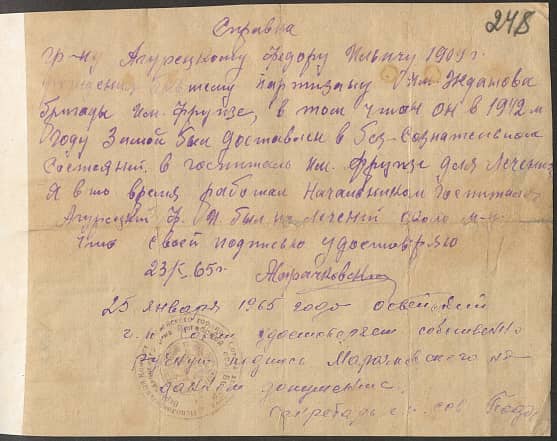 248
Справка
гр-ну Агурецкому Федору Ильичу 1909 г.
бывшему партизану О. им. Жданова
бригады им. Фрунзе, в том что он в 1942 м
году Зимой был доставлен в без-Сознательном
Состояний. в госпиталь им. Фрунзе для Лечения
Я в то время работал Начальником госпиталя
Агурецкий Ф. И. был на лечений около м-ца
Что своей подписью удостоверяю
23/I-65 г.
25 января 1965 года
г. п. удостоверяет собственно
ручную подпись Марачковского на
данном документе.
секретарь с. сов